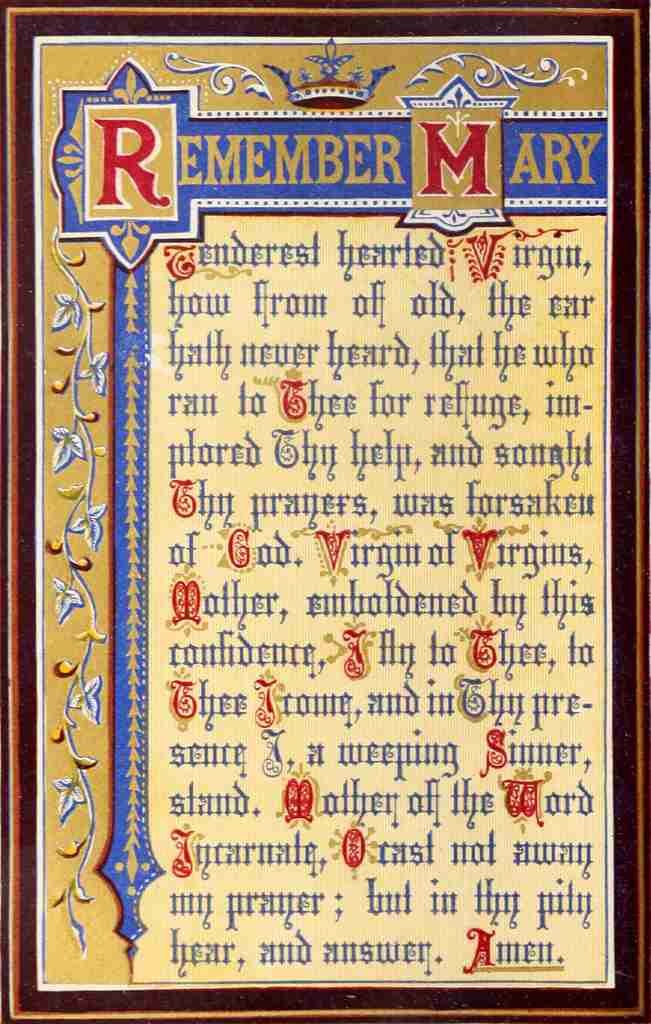 REMEMBER MARY
Tenderest hearted Virgin,
how from of old, the ear
hath never heard, that he who
ran to Thee for refuge, im-
plored Thy help, and sought
Thy prayers, was forsaken
of God. Virgin of Virgins,
Mother, emboldened by this
confidence, I fly to Thee, to
Thee I come, and in Thy pre-
sence I, a weeping Sinner,
stand. Mother of the Word
Incarnate, O cast not away
my prayer; but in thy pity
hear, and answer. Amen.